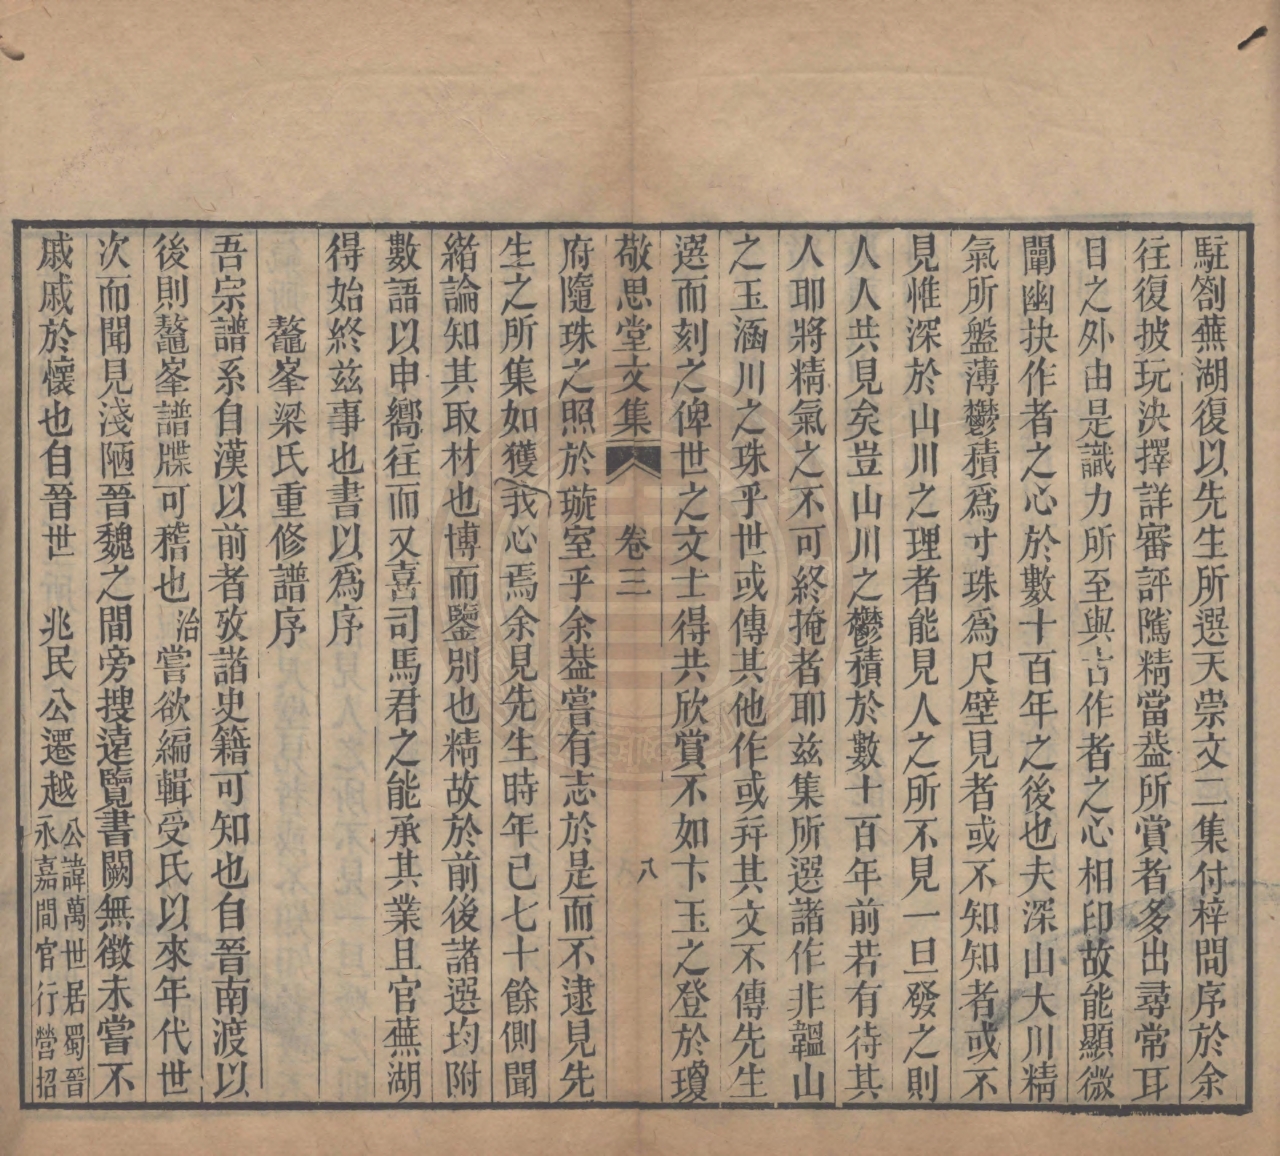 駐劄蕪湖復以先生所選天崇文二集付梓問序於余
往復披玩決擇詳審評隲精當葢所賞者多出尋常耳
目之外由是識力所至與古作者之心相印故能顯微
闡幽抉作者之心於數十百年之後也夫深山大川精
氣所盤薄鬱積爲寸珠爲尺璧見者或不知知者或不
見惟深於山川之理者能見人之所不見一旦發之則
人人共見矣豈山川之鬱積於數十百年前若有待其
人耶將精氣之不可終掩者耶兹集所選諸作非韞山
之玉涵川之珠乎世或傳其他作或弆其文不傳先生
選而刻之俾世之文士得共欣賞不如卞玉之登於瓊
敬思堂文集 卷三 八
府隨珠之照於璇室乎余葢嘗有志於是而不逮見先
生之所集如獲我心焉余見先生時年已七十餘側聞
緒論知其取材也博而鑒別也精故於前後諸選均附
數語以申嚮往而又喜司馬君之能承其業且官蕪湖
得始終兹事也書以爲序
鼇峯梁氏重修譜序
吾宗譜系自漢以前者攷諸史籍可知也自晉南渡以
後則鼇峯譜牒可稽也治嘗欲編輯受氏以來年代世
次而聞見淺陋晉魏之間旁搜遠覽書闕無徵未嘗不
戚戚於懷也自晉世 兆民公遷越公諱萬世居蜀晉
永嘉間官行營招